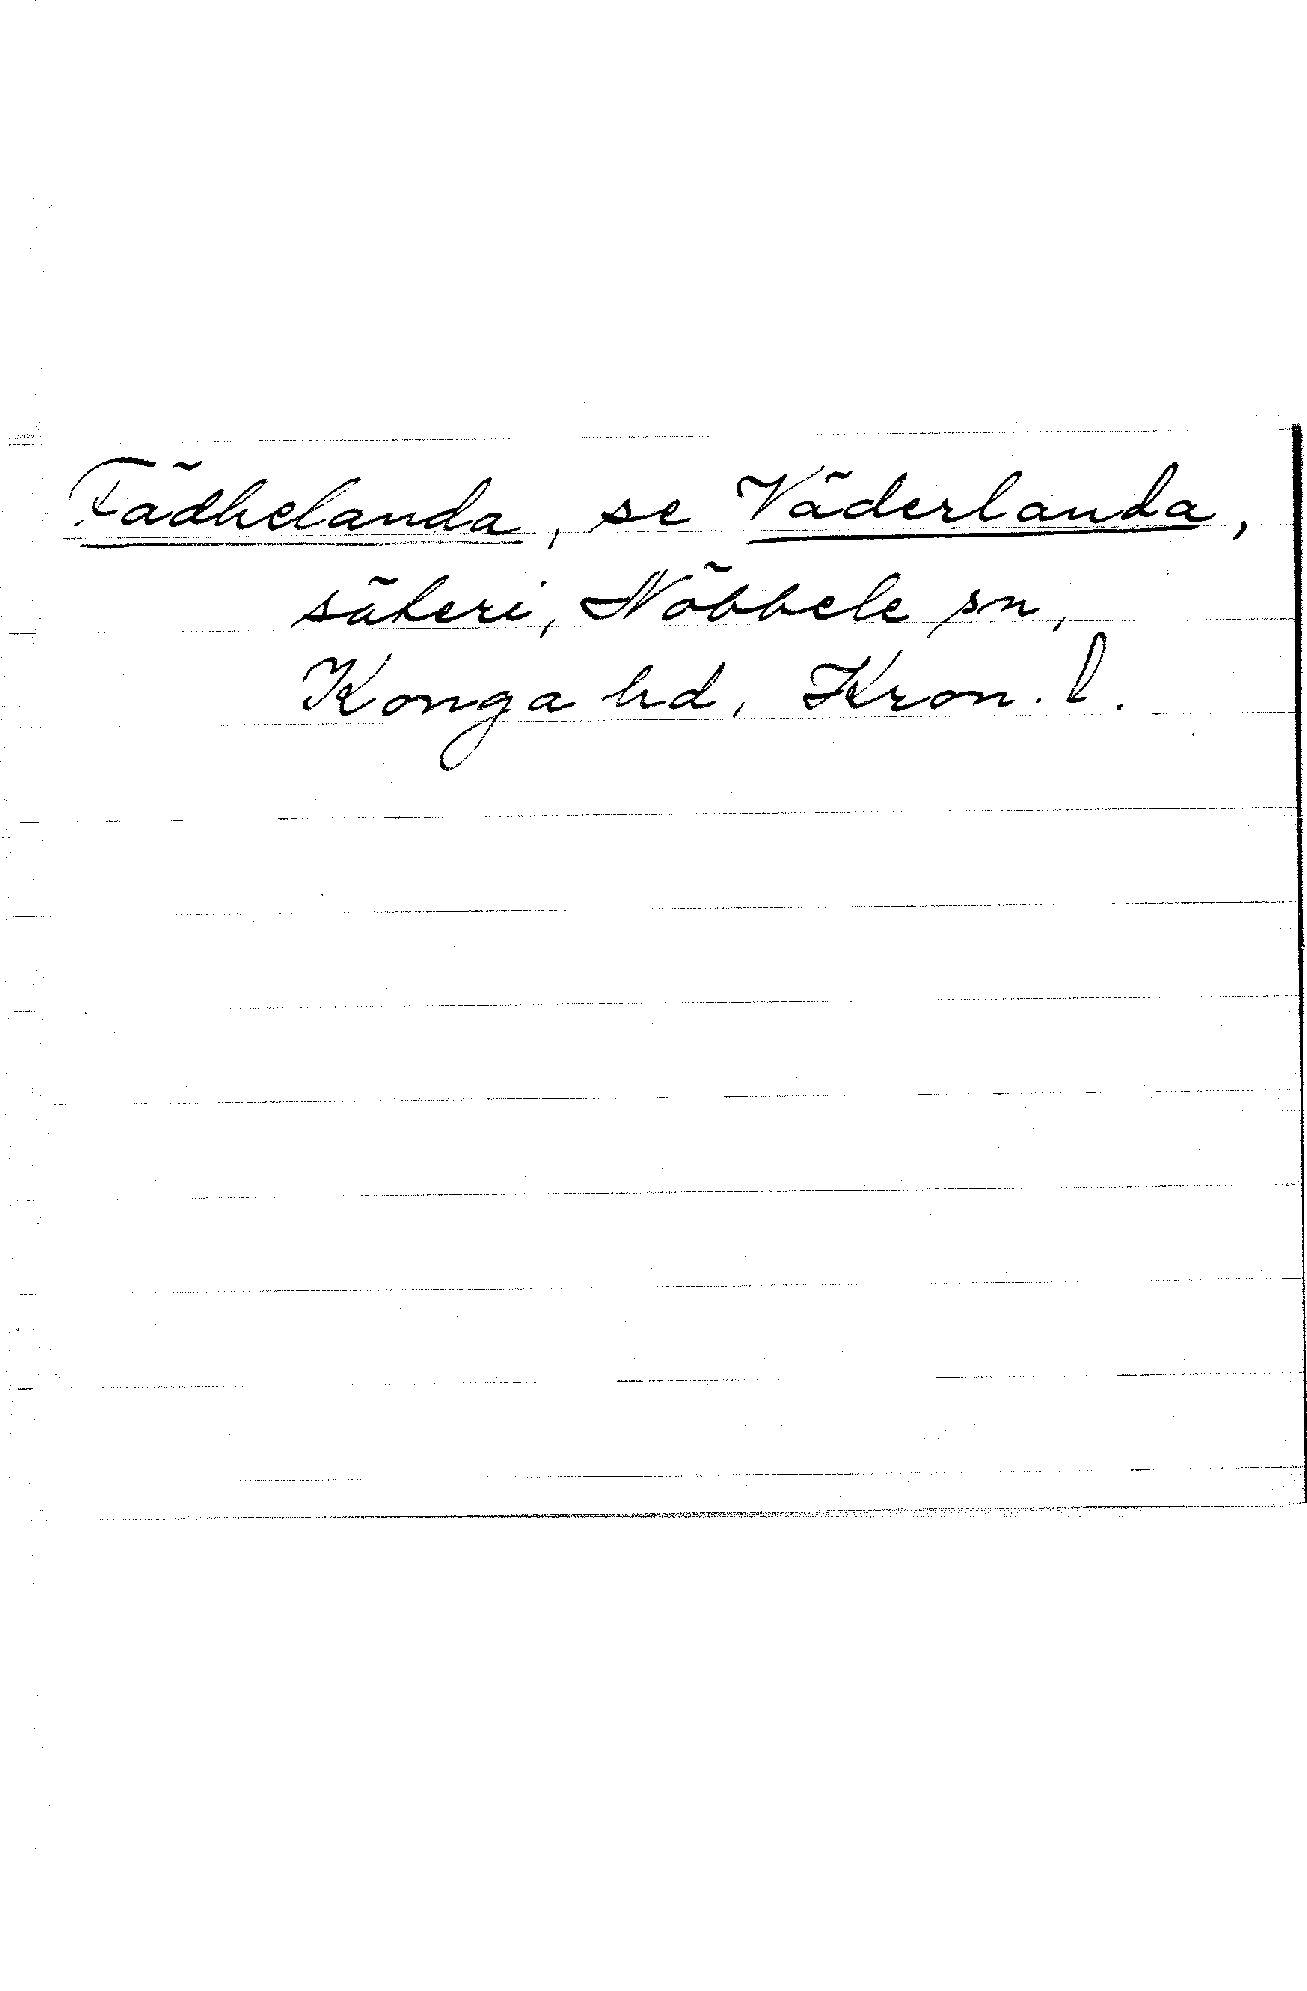 Fädhelanda, se Väderlanda,
säteri, Nöbbele sn,
Konga hd, Kron. l.